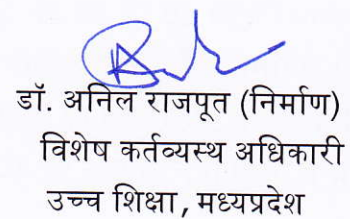 डॉ. अनिल राजपूत (निर्माण)
विशेष कर्तव्यस्थ अधिकारी
उच्च शिक्षा, मध्यप्रदेश